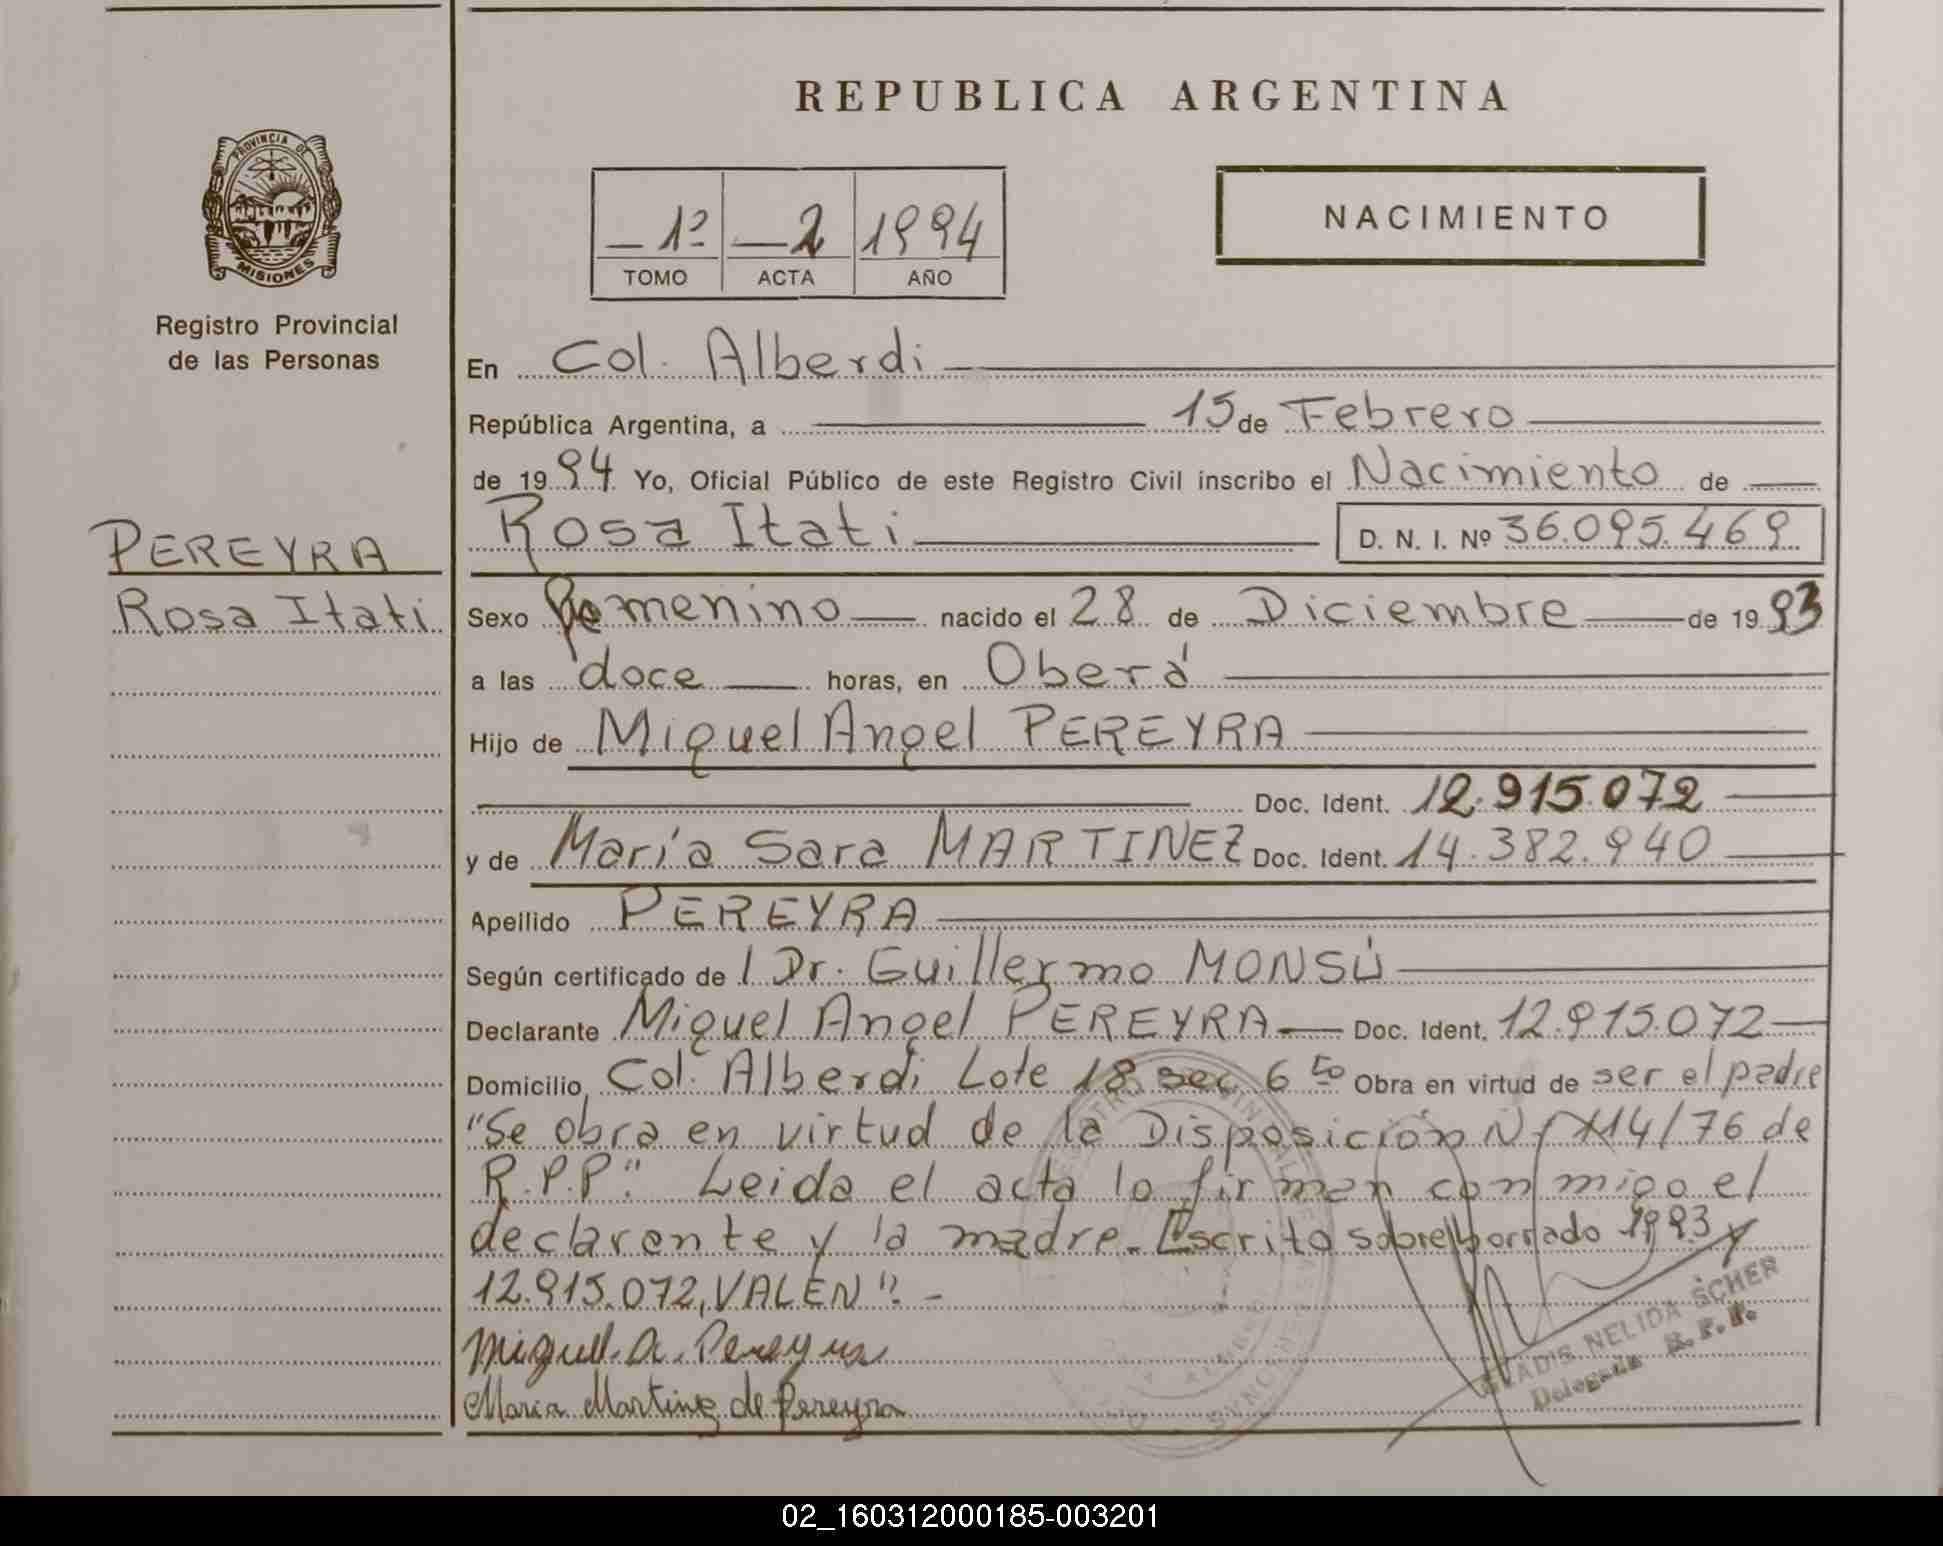 REPUBLICA ARGENTINA
PROVINCIA DE
MISIONES
Registro Provincial
de las Personas
1º 2 1994
TOMO ACTA AÑO
NACIMIENTO
En Col. Alberdi
República Argentina, a 15 de Febrero
de 1994 Yo, Oficial Público de este Registro Civil inscribo el Nacimiento de
PEREYRA
Rosa Itati
Rosa Itati D. N. I. Nº 36.095.469
Sexo Femenino nacido el 28 de Diciembre de 1993
a las doce horas, en Oberá
Hijo de Miguel Angel PEREYRA
Doc. Ident. 12.915.072
y de María Sara MARTINEZ Doc. Ident. 14.382.940
Apellido PEREYRA
Según certificado de l Dr. Guillermo MONSÚ
Declarante Miguel Angel PEREYRA Doc. Ident. 12.915.072
Domicilio Col. Alberdi Lote 18 sec. 6 Obra en virtud de ser el padre
"Se obra en virtud de la Disposición 14/76 de
R.P.P." Leida el acta lo firman conmigo el
declarante y la madre. Escrito sobre borrado 1993 y
12.915.072, VALEN".-
Miguel. A. Pereyra
Maria Martinez de Pereyra
NELIDA SCHER
Delegada R. P. P.
02_160312000185-003201